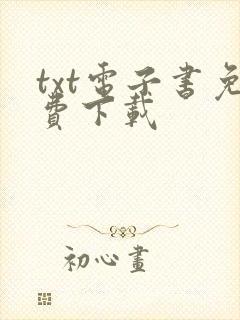 txt電子書免
費下載
初心畫